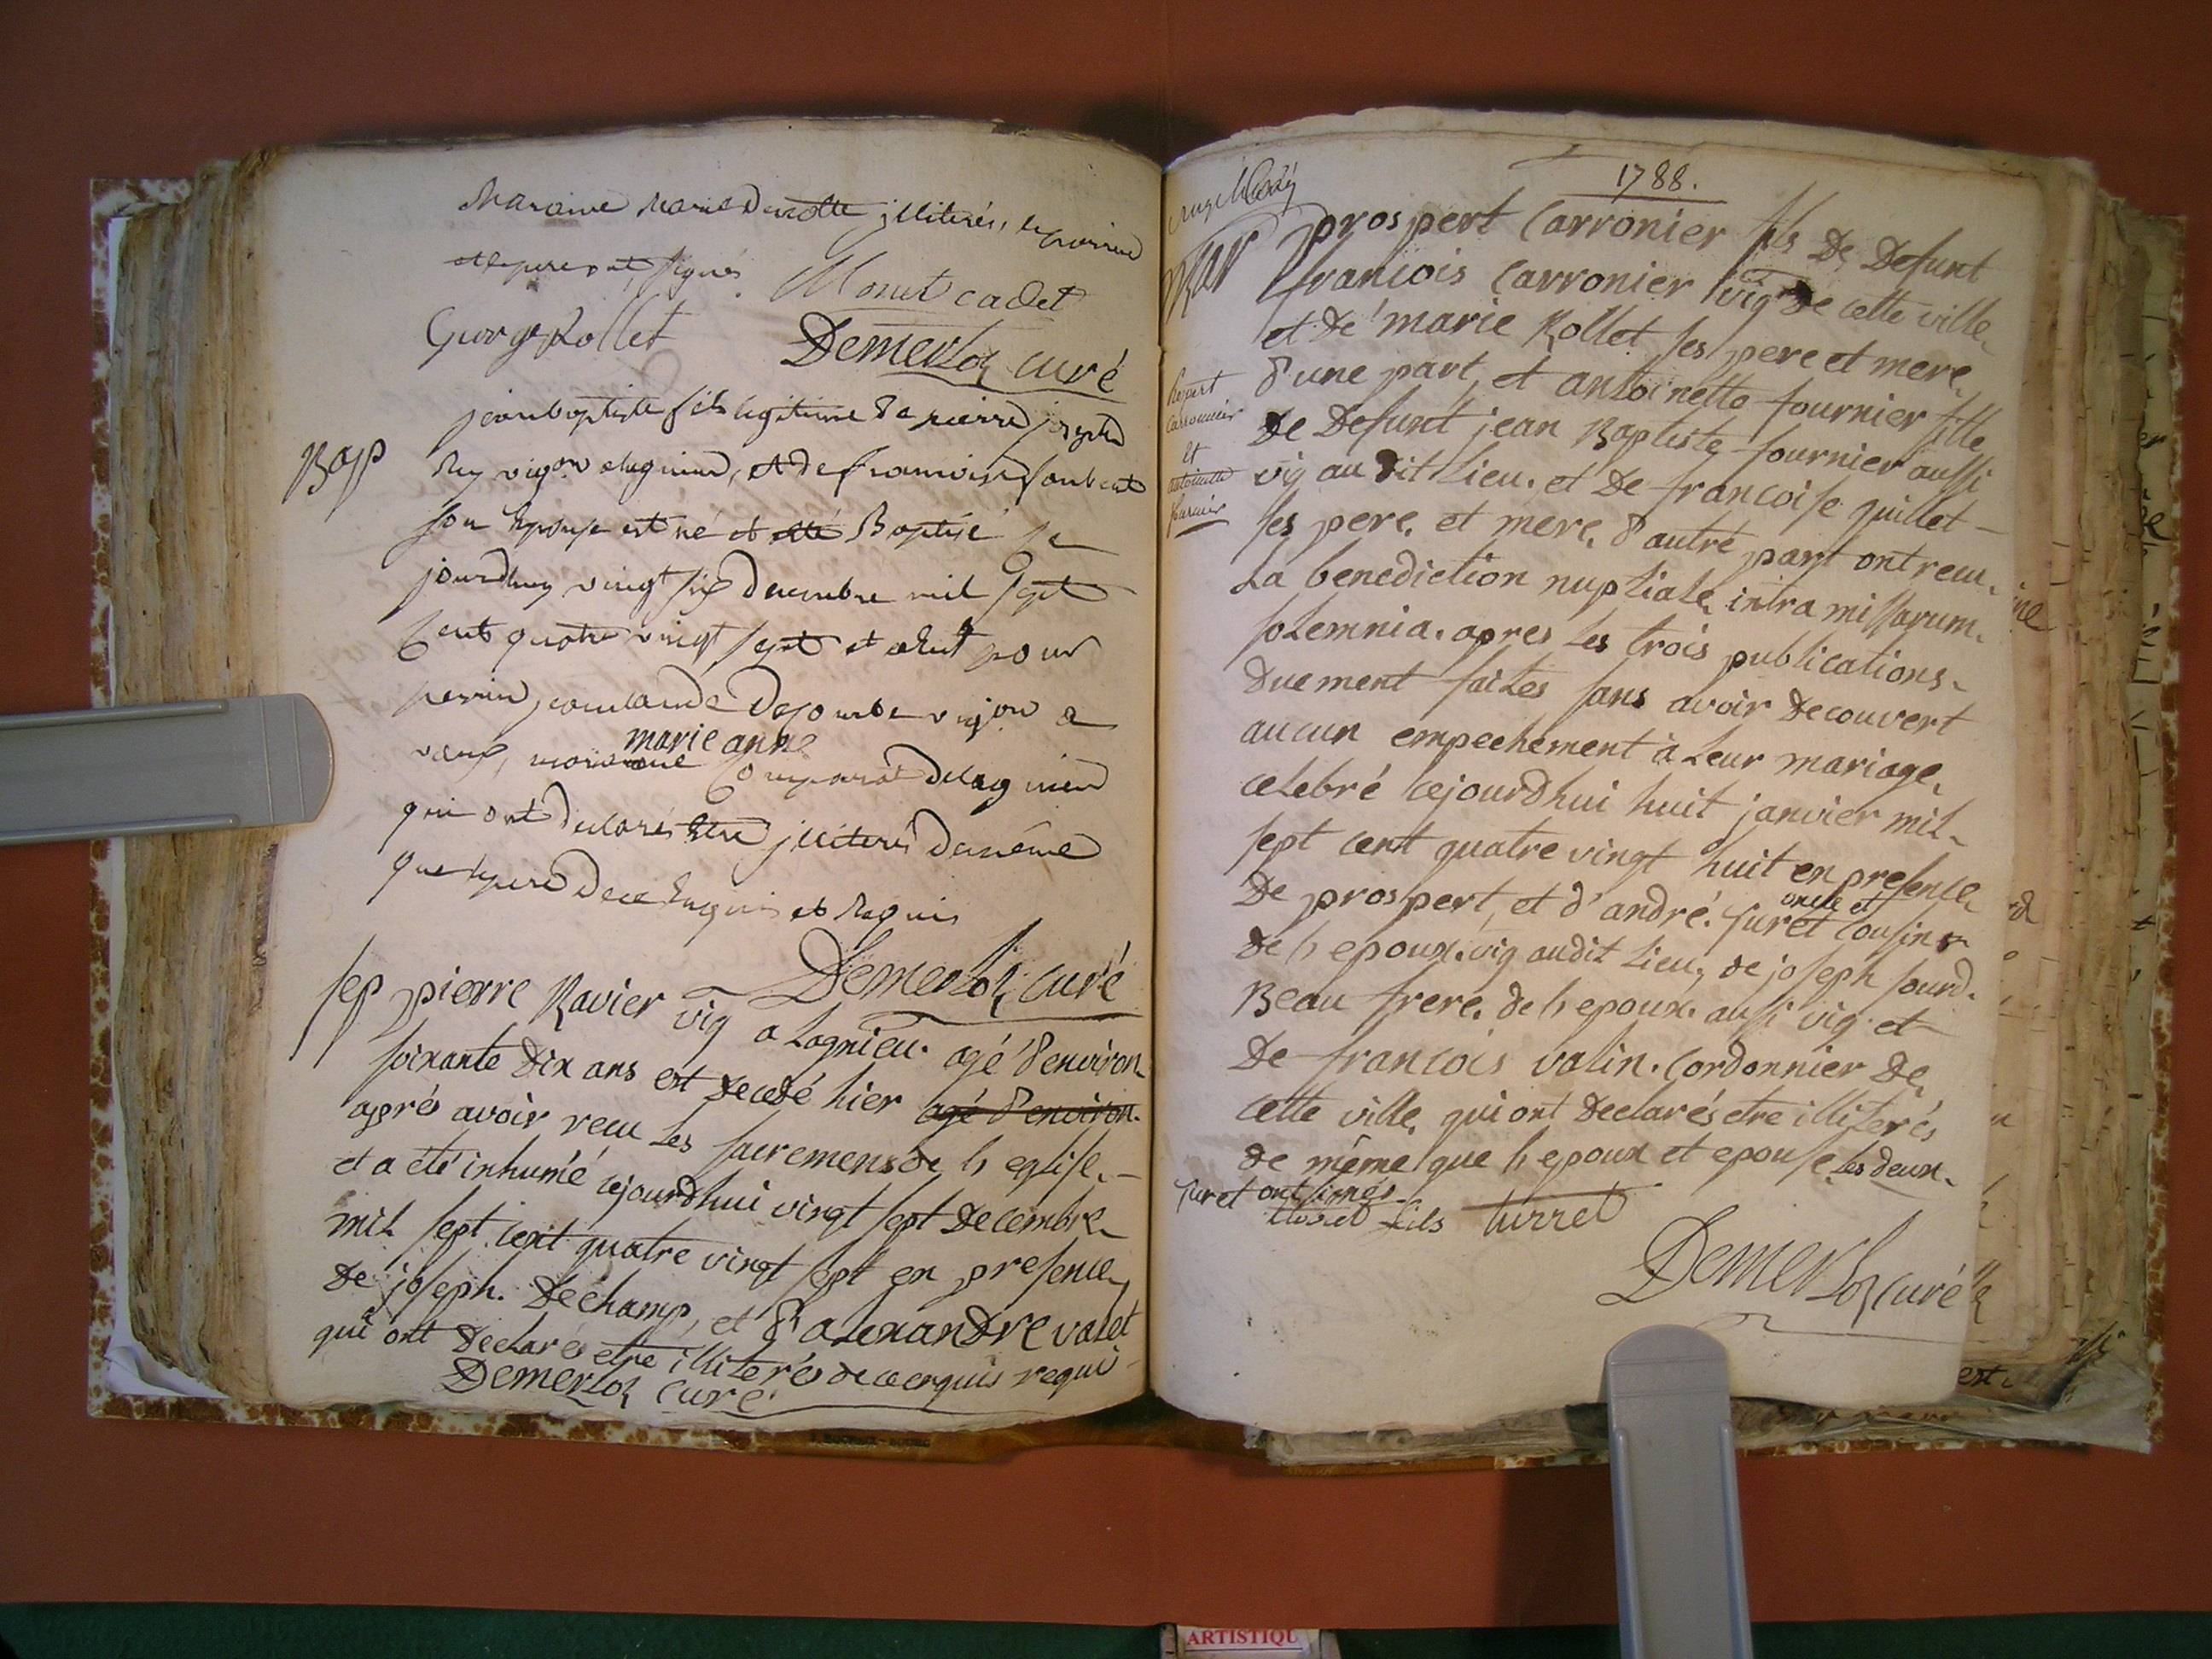 Maraine Marie Devolle illiterés, le parrain
et le pere ont signés Monet cadet
George Rollet Demerloz curé
Bap jean baptiste fils legitime de pierre joseph
Rey vigon a lagnieu, et de francoise
son Epouse est né et eté Baptisé ce
jourdhuy vingt six decembre mil sept
Cent quatre vingt sept et a eut pour
parrin jean claude Dejourbe vigon a
vaux, maraine marie anne Comparat de lagnieu
qui ont declarés Etre jlliterés de même
que le pere de ce Enquis et Requis
Demerloz curé
sep pierre Ravier vig a Lagnieu. agé d'environ
soixante dix ans est decedé hier agé d'environ
aprés avoir recu les sacremens de l'eglise.
et a été inhumé cejourdhui vingt sept decembre
mil sept cent quatre vingt sept en presence
de joseph. Dechamp, et d'alexandre valet
qui ont declarés etre illiterés de ce enquis requi
Demerloz curé
1788.
Mar prospert Carronier fils De Defunt
francois Carronier vig de cette ville
et de marie Rollet ses pere et mere
d'une part, et antoinette fournier fille
De Defunt jean Baptiste fournier aussi
vig au dit Lieu. et De francoise quillet
ses pere, et mere, d'autre part ont recu
La benediction nuptiale, intra missarum
solemnia. apres les trois publications
duement faites sans avoir decouvert
aucun empechement à leur mariage
celebré cejourdhui huit janvier mil
sept cent quatre vingt huit en presence
De prospert, et d'andré. furet oncle et cousin
de l'epoux. vig audit Lieu, de joseph sourd.
Beau frere. de l'epoux. aussi vig. et
De francois valin. Cordonnier de
cette ville, qui ont declarés etre illiterés
de même que l'epoux et epouse les deux
furet ont signés
fils turret
Demerloz curé
Carronnier
et
antoinette
fournier